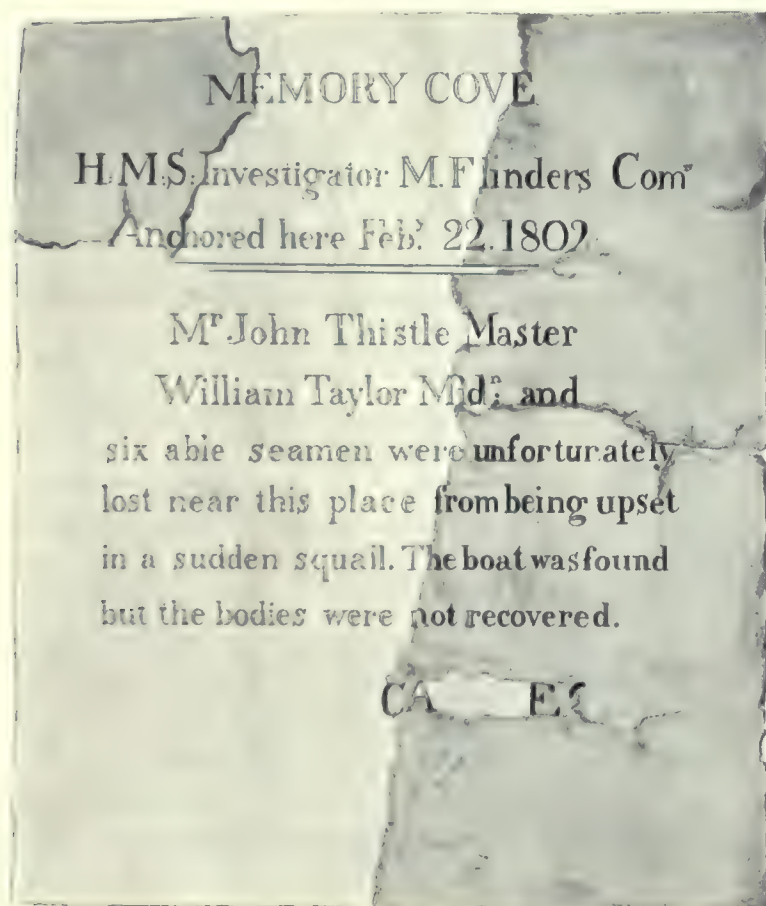 MEMORY COVE
H.M.S. Investigator M. Flinders Comr
Anchored here Feby. 22. 1802
Mr John Thistle Master
William Taylor Midn. and
six able seamen were unfortunately
lost near this place from being upset
in a sudden squall. The boat was found
but the bodies were not recovered.